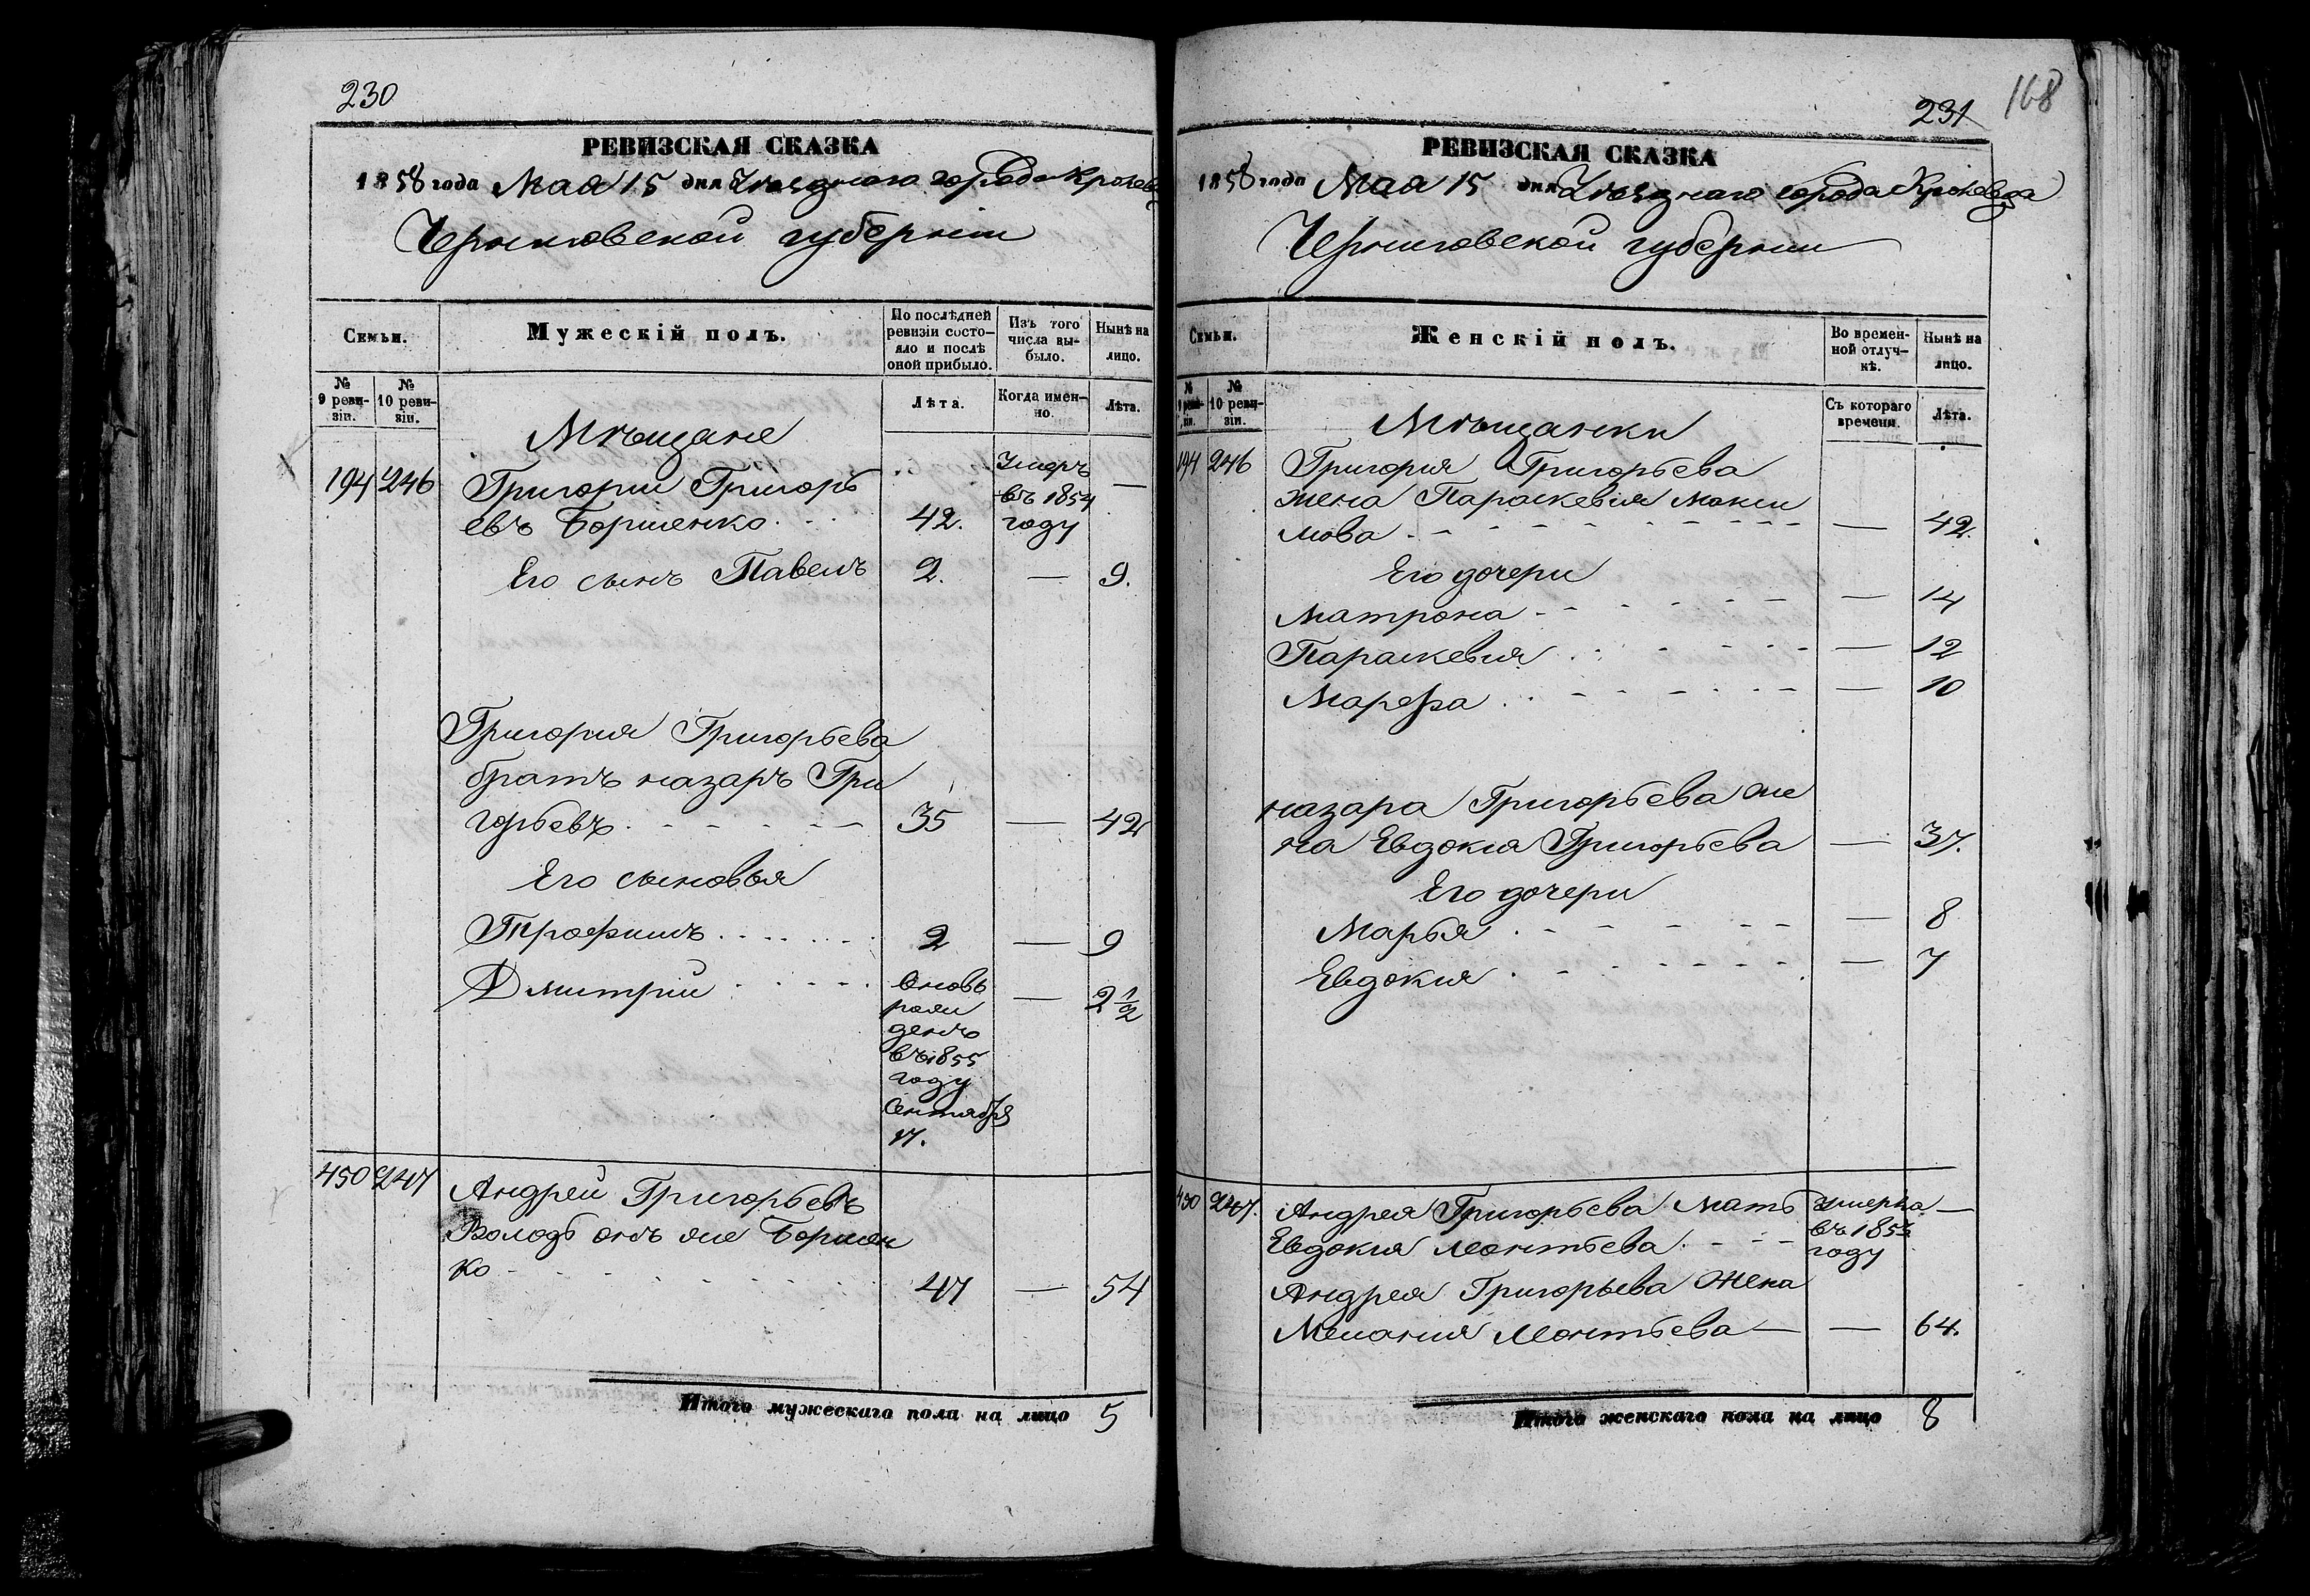 230
РЕВИЗСКАЯ СКАЗКА
1858 года Мая 15 дня Уѣзднаго города Кролевца
Черниговской губерніи
Семьи.
Мужескій полъ.
По послѣдней ревизіи состо-
яло и послѣ
оной прибыло.
Изъ того
числа вы-
было.
Нынѣ на
лицо.
№
9 реви-
зіи.
№
10 реви-
зіи.
Лѣта.
Когда имен-
но.
Лѣта.
Мѣщане
194 246 Григорій Григорь
евъ Боршенко . . . 42. Умеръ
въ 1854
году —
Его сынъ Павелъ 2. — 9.
Григорія Григорьева
братъ назаръ Гри
горьевъ . - - - - 35 — 42
Его сыновья
Трофимъ . . . . . . 2 — 9
Дмитрій . . . . . вновь
рож
денъ
въ 1855
году
Сентября
17. — 2 1/2
450 247 Андрей Григорьевъ
Володь онъ же Боршен
ко - - - - - - 47 — 54
Итого мужескаго пола на лицо 5
168
231
РЕВИЗСКАЯ СКАЗКА
1858 года Мая 15 дня Уѣзднаго города Кролевца
Черниговской губерніи
Семьи.
Женскій полъ.
Во времен-
ной отлуч-
кѣ.
Нынѣ на
лицо.
№
9 реви-
зіи.
№
10 реви-
зіи.
Съ котораго
времени.
Лѣта.
Мѣщанки
194 246 Григорія Григорьева
жена Параскевія Макси
мова . - - - - - - — 42.
Его дочери
Матрона - - - - - — 14
Параскевія . . - - - — 12
Марфа . . - - - — 10
назара Григорьева же
на Евдокія Григорьева — 37.
Его дочери
Марья . - - - - — 8
Евдокія . - - - - — 7
450 247. Андрея Григорьева мать Умерла —
Евдокія Леонтьева . - - въ 1853
году
Андрея Григорьева жена
Меланія Леонтьева — — 64.
Итого женскаго пола на лицо 8